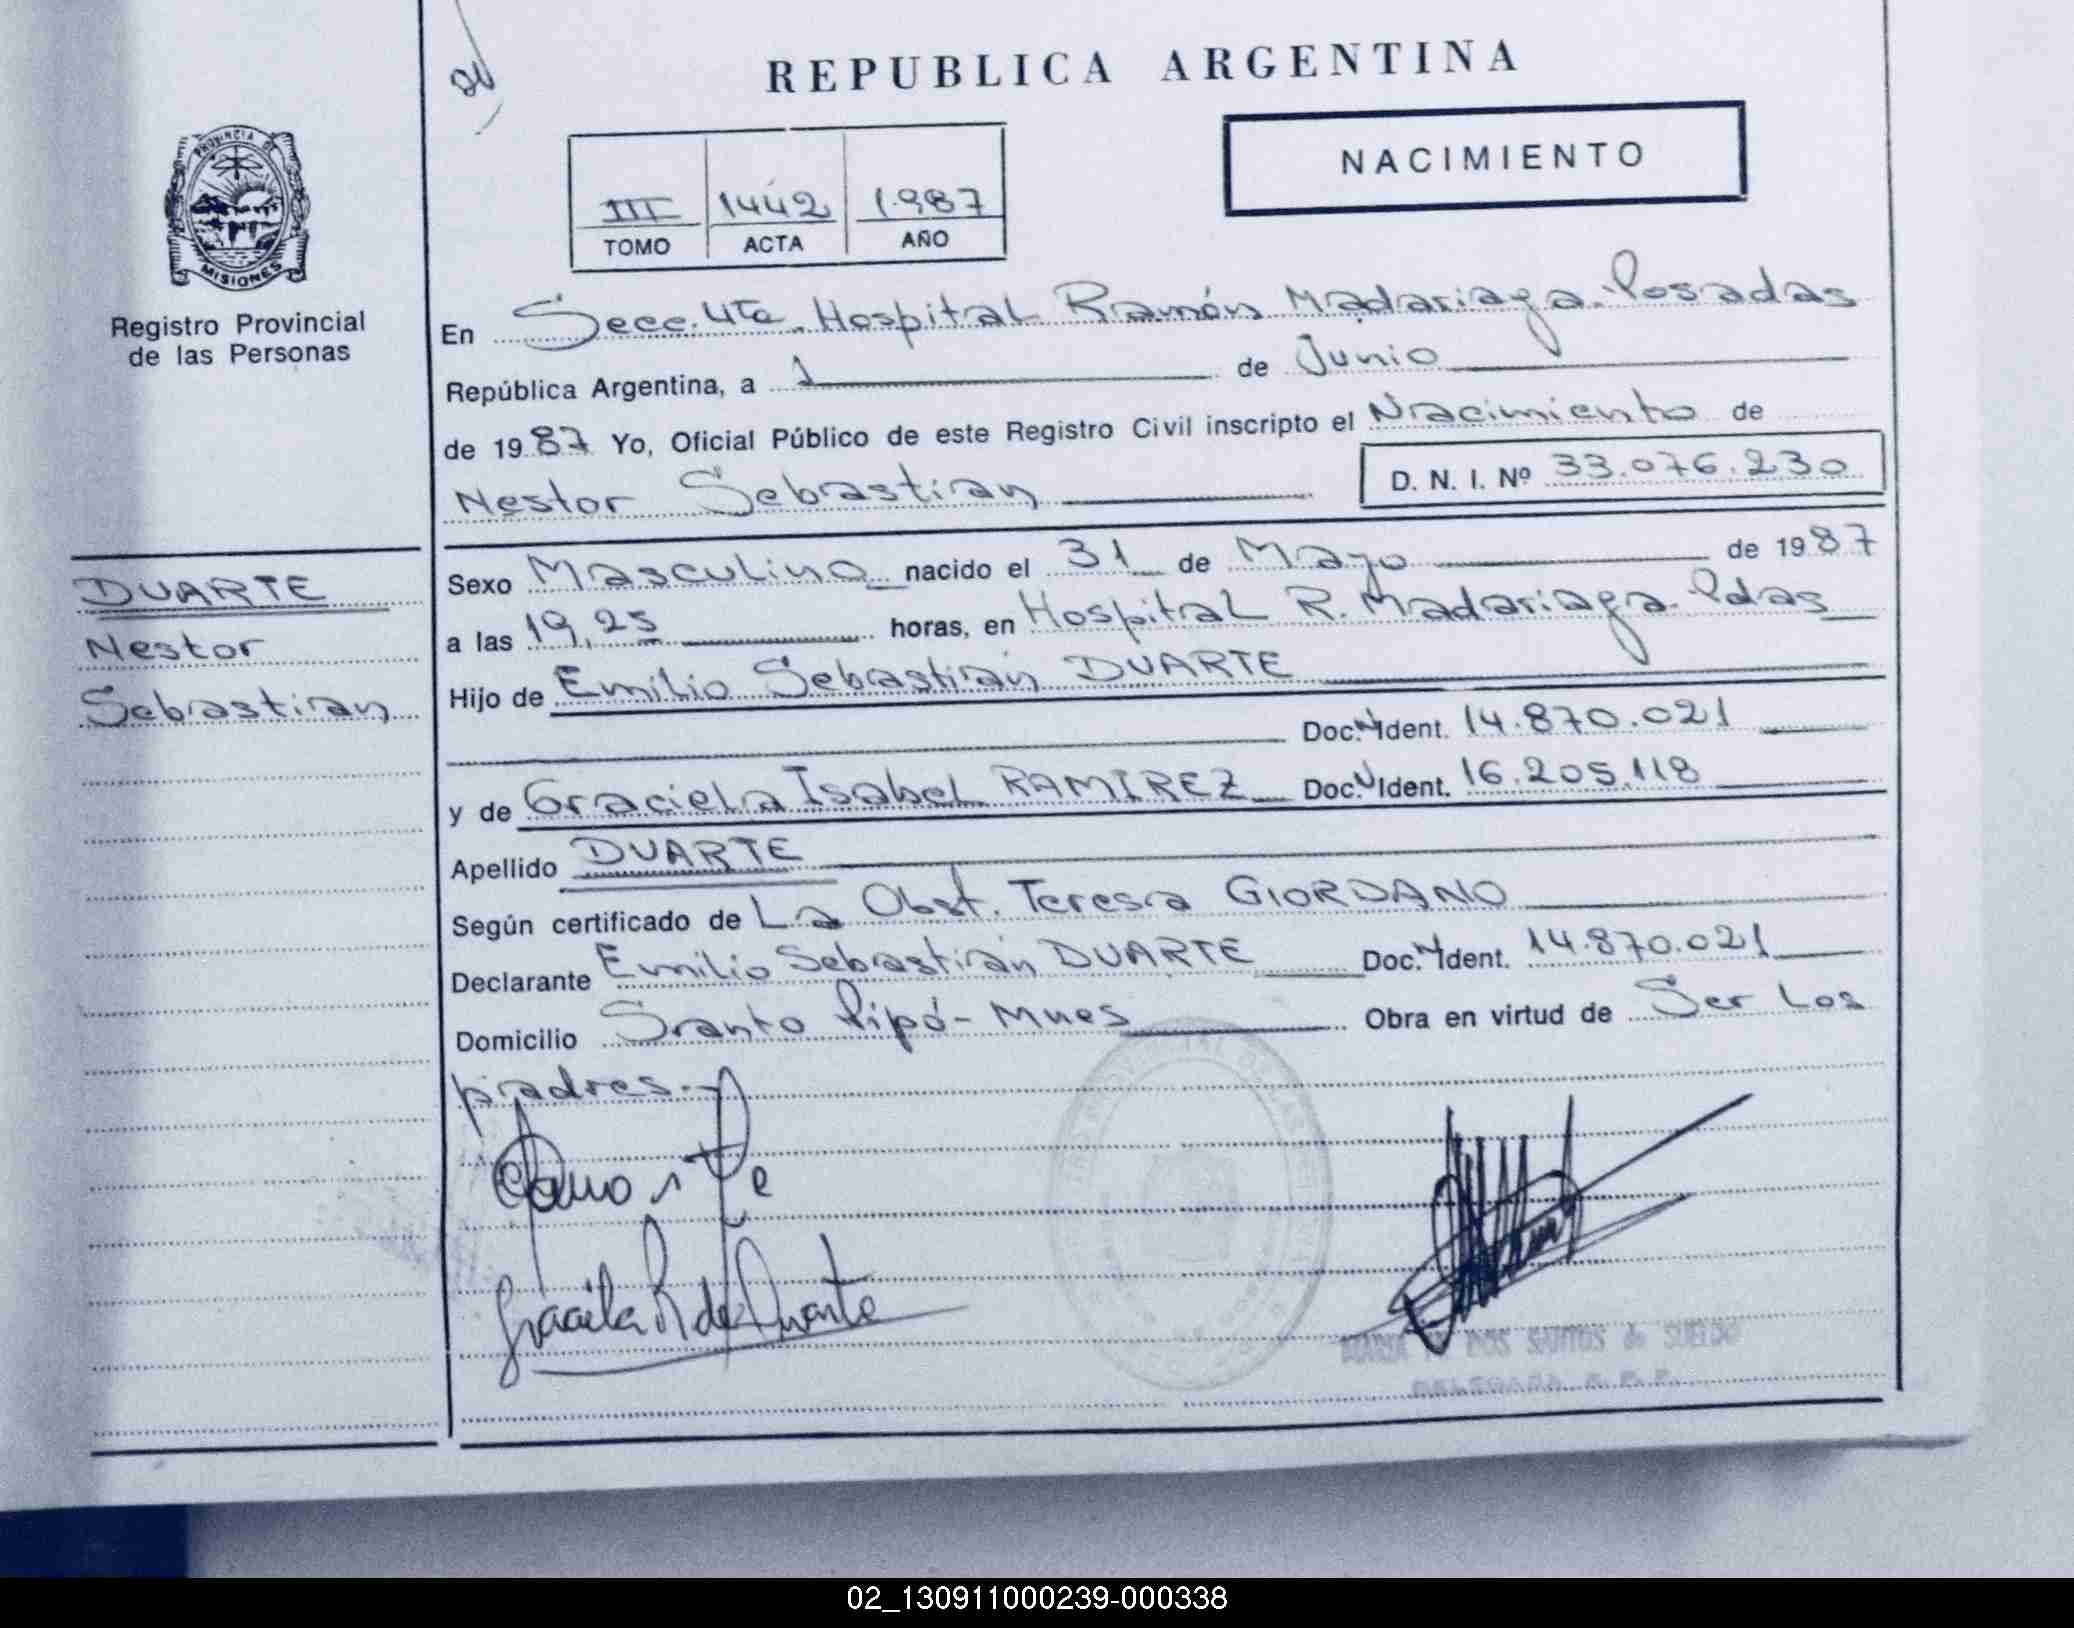 REPUBLICA ARGENTINA
NACIMIENTO
III 1442 1987
TOMO ACTA AÑO
PROVINCIA DE
MISIONES
Registro Provincial
de las Personas
DUARTE
Nestor
Sebastian
En Secc. 4ta. Hospital Ramón Madariaga. Posadas
República Argentina, a 1 de Junio
de 1987 Yo, Oficial Público de este Registro Civil inscripto el Nacimiento de
Nestor Sebastian D. N. I. Nº 33.076.230
Sexo Masculino nacido el 31 de Mayo de 1987
a las 19,25 horas, en Hospital R. Madariaga. Pdas
Hijo de Emilio Sebastián DUARTE
Doc. Ident. 14.870.021
y de Graciela Isabel RAMIREZ Doc. Ident. 16.205.118
Apellido DUARTE
Según certificado de La Obst. Teresa GIORDANO
Declarante Emilio Sebastián DUARTE Doc. Ident. 14.870.021
Domicilio Santo Pipó - Mnes Obra en virtud de Ser Los
padres.-
Graciela R de Duarte
DOS SANTOS de SUELDO
02_130911000239-000338